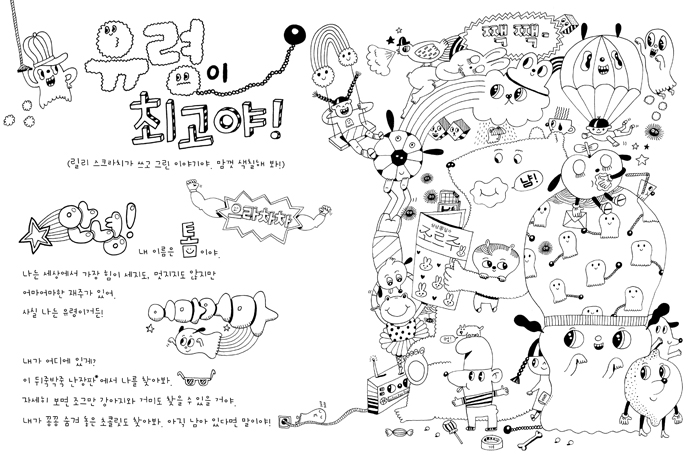 유령이
최고야!
(릴리 스크라치가 쓰고 그린 이야기야. 맘껏 색칠해 봐!)
안녕!
으라차차
내 이름은 톰이야.
나는 세상에서 가장 힘이 세지도, 멋지지도 않지만
어마어마한 재주가 있어.
사실 나는 유령이거든!
내가 어디에 있게?
이 뒤죽박죽 난장판*에서 나를 찾아봐.
자세히 보면 조그만 강아지와 거미도 찾을 수 있을 거야.
내가 꽁꽁 숨겨 놓은 초콜릿도 찾아봐. 아직 남아 있다면 말이야!
짹 짹
냠!